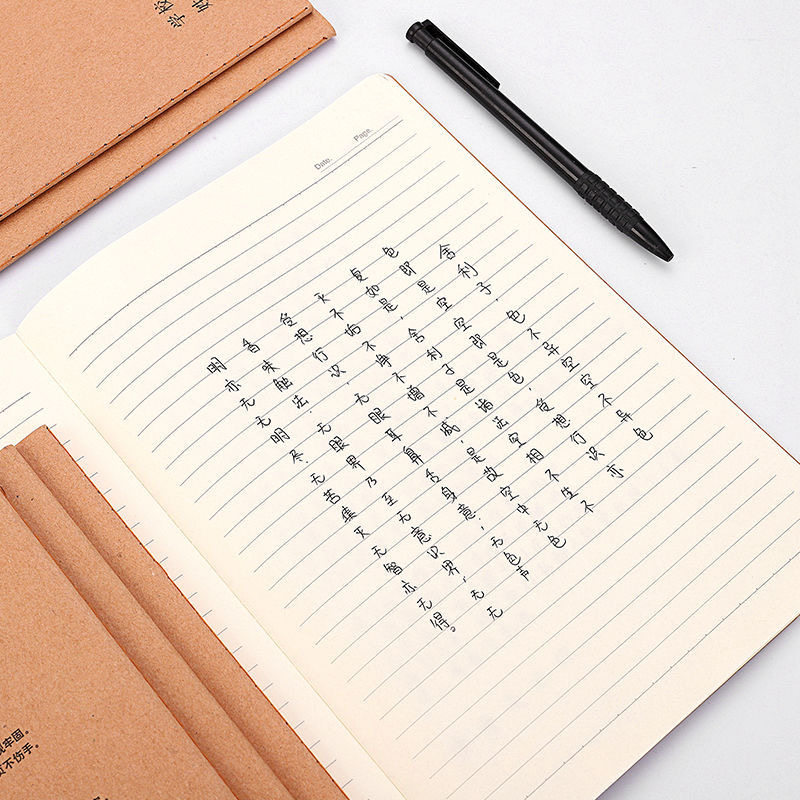 学校
姓
Date. Page.
舍利子，色不异空空不异色
色即是空空即是色，受想行识亦
复如是，舍利子是诸法空相不生不
灭不垢不净不增不减，是故空中无色
受想行识，无眼耳鼻舌身意，无色声
香味触法，无眼界乃至无意识界，无无
明亦无无明尽，无苦集灭无智亦无得。
牢固。
不伤手。